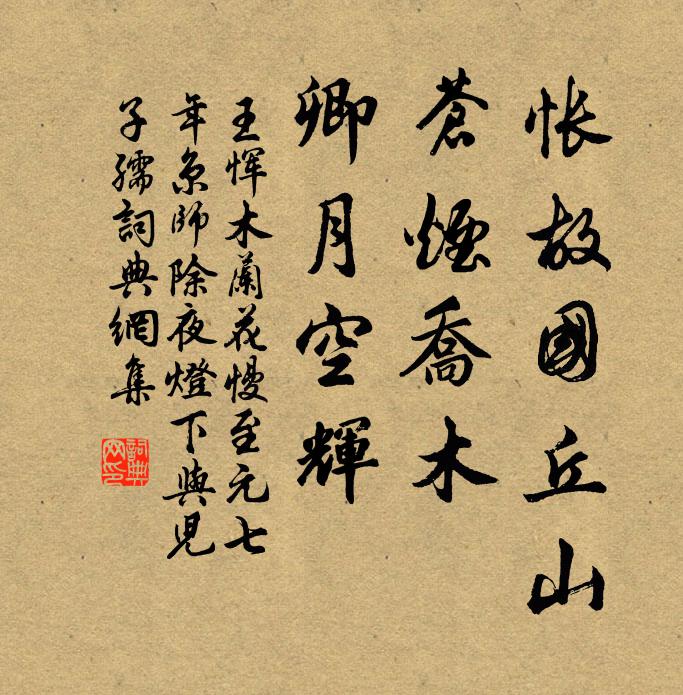 悵故國丘山
蒼煙喬木
卿月空輝
王惲木蘭花慢至元七
年京師除夜燈下與児
子孺詞典網集
詞典
网印